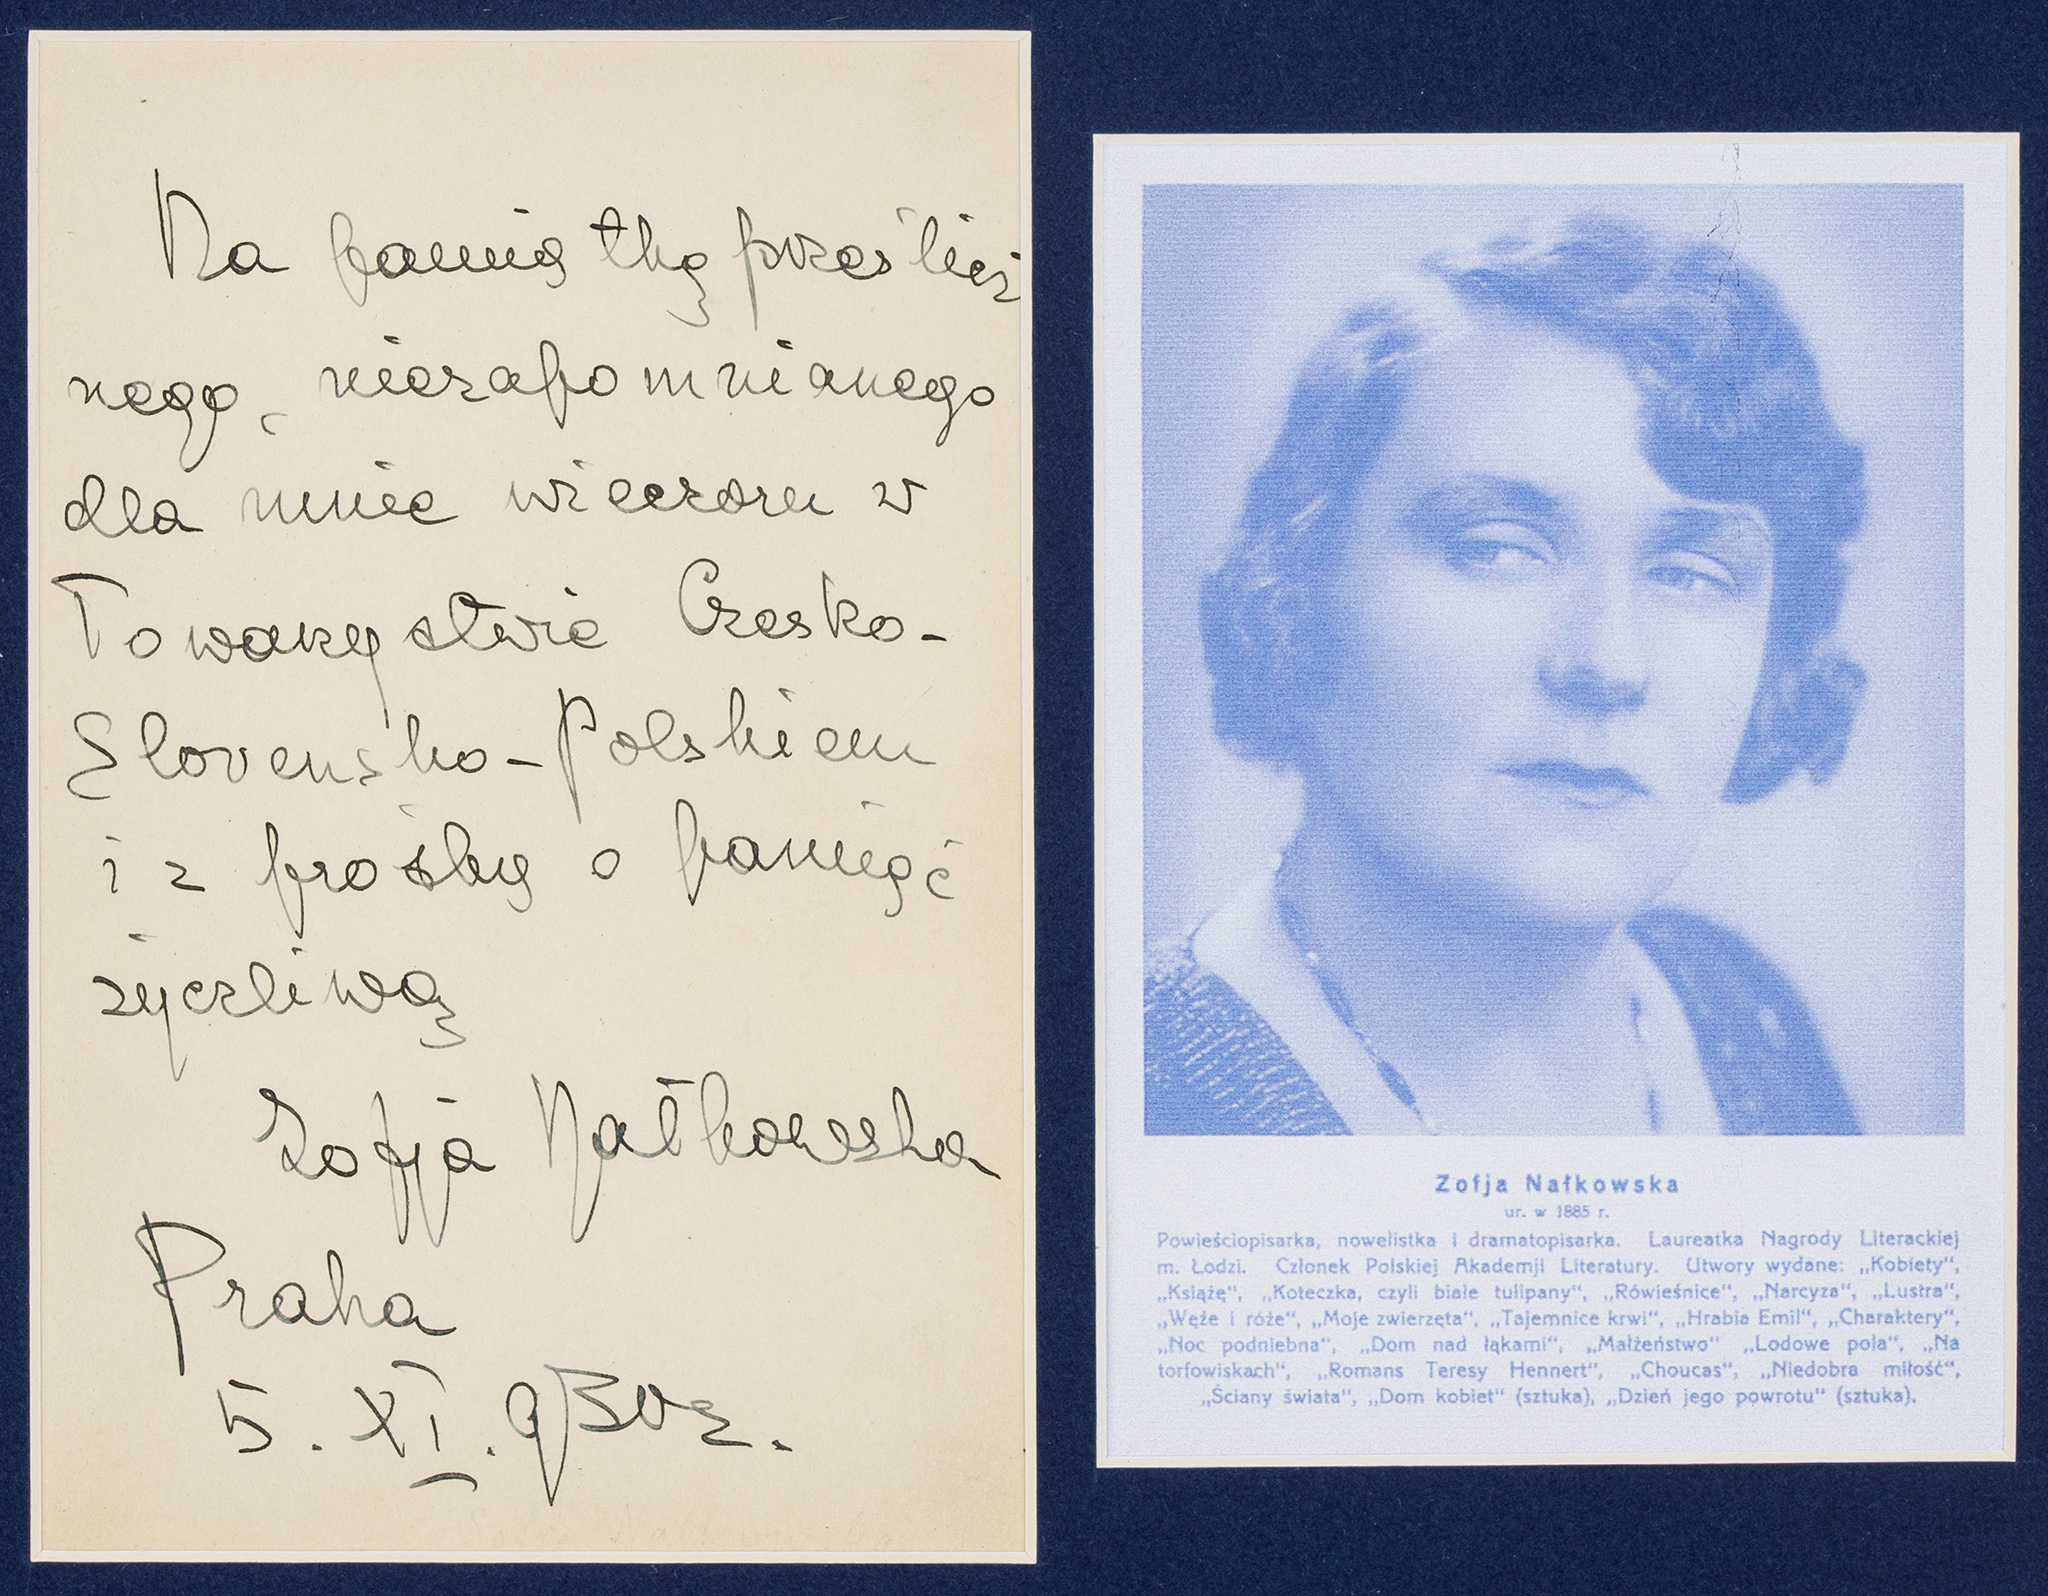 Na pamiątkę przeslicz
nego, niezapomnianego
dla mnie wieczoru w
Towarzystwie Czesko-
Slovensko-Polskiem
i z prośbą o pamięć
życzliwą
Zofja Nałkowska
Praha
5. XI. 930 r.
Zofja Nałkowska
ur. w 1885 r.
Powieściopisarka, nowelistka i dramatopisarka. Laureatka Nagrody Literackiej
m. Łodzi. Członek Polskiej Akademji Literatury. Utwory wydane: „Kobiety“,
„Książę“, „Koteczka, czyli białe tulipany“, „Rówieśnice“, „Narcyza“, „Lustra“,
„Węże i róże“, „Moje zwierzęta“, „Tajemnice krwi“, „Hrabia Emil“, „Charaktery“,
„Noc podniebna“, „Dom nad łąkami“, „Małżeństwo“ „Lodowe pola“, „Na
torfowiskach“, „Romans Teresy Hennert“, „Choucas“, „Niedobra miłość“,
„Ściany świata“, „Dom kobiet“ (sztuka), „Dzień jego powrotu“ (sztuka).